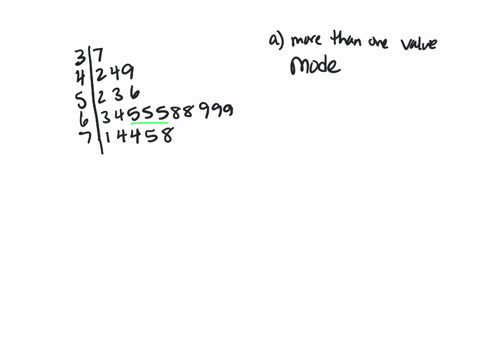 3|7
4|2 4 9
5|2 3 6
6|3 4 5 5 5 8 8 9 9 9
7|1 4 4 5 8
a) more than one value
Mode